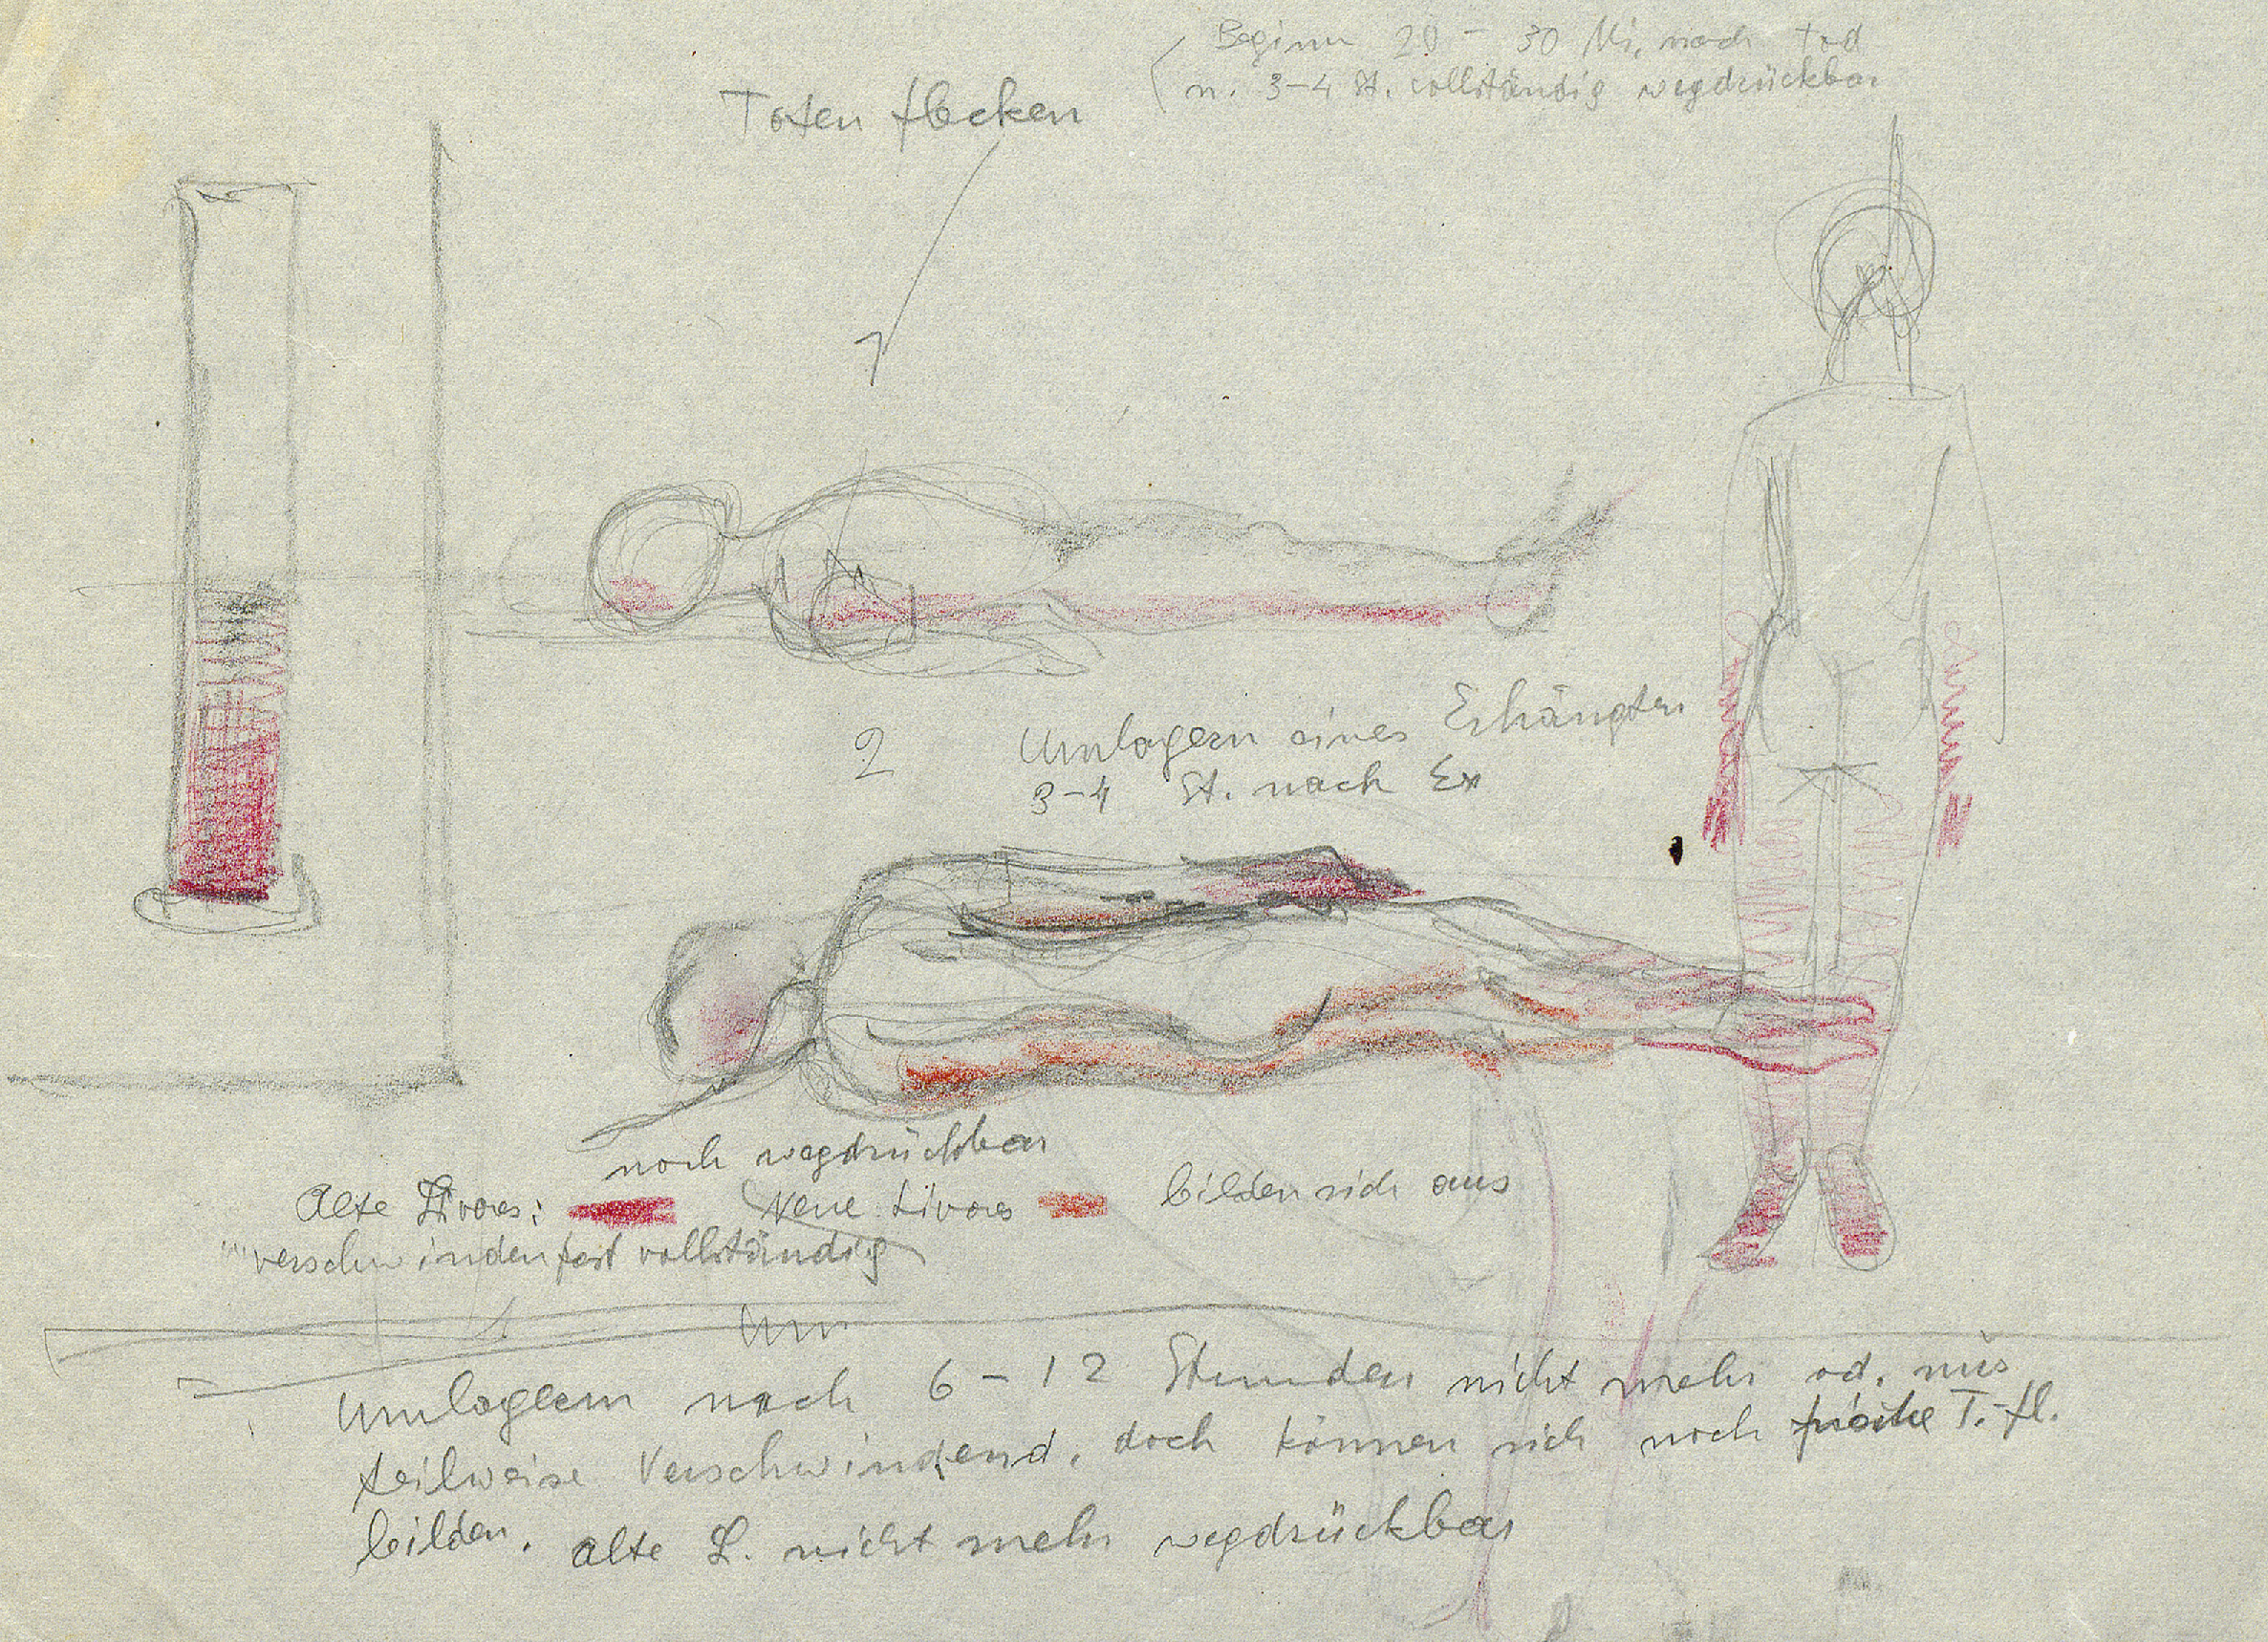 Beginn 20 - 30 Mi. nach Tod
n. 3-4 St. vollständig wegdrückbar
Totenflecken
2
Umlagern eines Erhängten
3-4 St. nach Ex
noch wegdrückbar
Alte Livores: Neue Livores bilden sich aus
verschwinden fast vollständig
Um
Umlagern nach 6 - 12 Stunden nicht mehr od. nur
teilweise Verschwindend, doch können sich noch frische T.-fl.
bilden. alte L. nicht mehr wegdrückbar